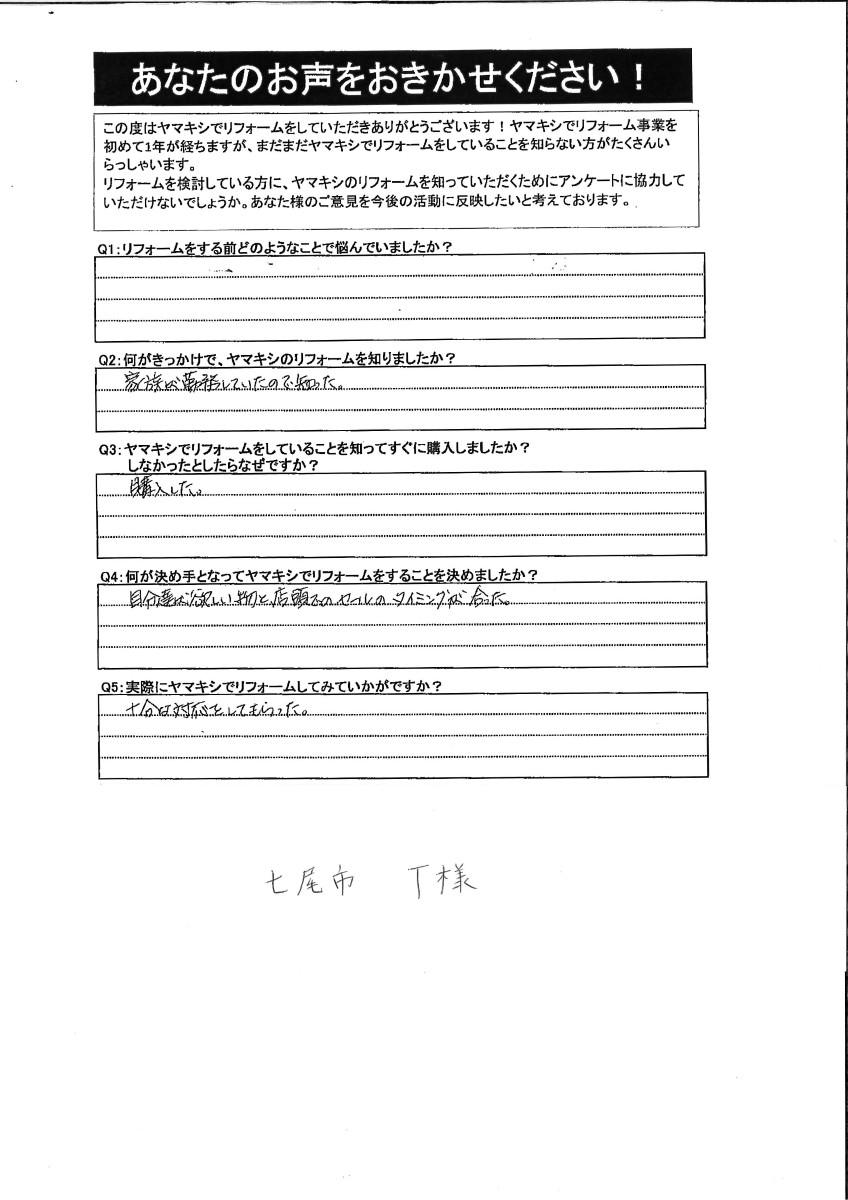 あなたのお声をおきかせください！
この度はヤマキシでリフォームをしていただきありがとうございます！ヤマキシでリフォーム事業を
初めて1年が経ちますが、まだまだヤマキシでリフォームをしていることを知らない方がたくさんい
らっしゃいます。
リフォームを検討している方に、ヤマキシのリフォームを知っていただくためにアンケートに協力して
いただけないでしょうか。あなた様のご意見を今後の活動に反映したいと考えております。
Q1：リフォームをする前どのようなことで悩んでいましたか？
Q2：何がきっかけで、ヤマキシのリフォームを知りましたか？
家族が勤務していたので知った。
Q3：ヤマキシでリフォームをしていることを知ってすぐに購入しましたか？
しなかったとしたらなぜですか？
購入した。
Q4：何が決め手となってヤマキシでリフォームをすることを決めましたか？
自分達が欲しい物と店頭でのセールのタイミングが合った。
Q5：実際にヤマキシでリフォームしてみていかがですか？
十分な対応をしてもらった。
七尾市 T様